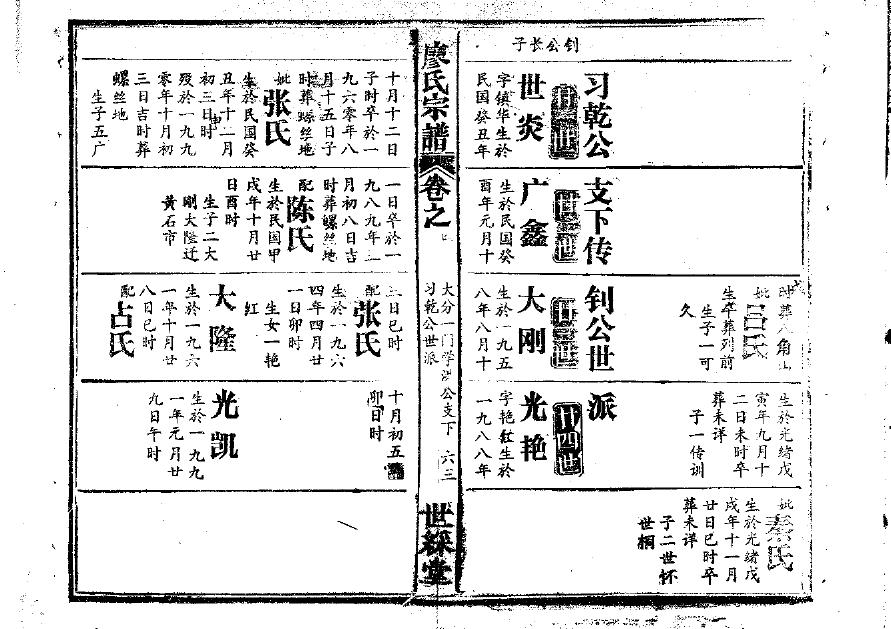 钊公长子
时葬八角山
妣吕氏
生卒葬列前
生子一可
久
生於光绪戊
寅年九月十
二日未时卒
葬未详
子一传训
妣秦氏
生於光绪戊
戌年十一月
廿日巳时卒
葬未详
子二世怀
世桐
习乾公支下传钊公世派
廿一世
世炎
字镇华生於
民国癸丑年
廿二世
广鑫
生於民国癸
酉年元月十
廿三世
大刚
生於一九五
八年八月十
廿四世
光艳
字艳红生於
一九八八年
廖氏宗譜
卷之
大分一门学洪公支下
习乾公世派
六三
世綵堂
十月十二日
子时卒於一
九六零年八
月十五日子
时葬螺丝地
妣张氏
生於民国癸
丑年十一月
初三日时
殁於一九九
零年十月初
三日吉时葬
螺丝地
生子五广
一日卒於一
九八九年二
月初八日吉
时葬螺丝地
配陈氏
生於民国甲
戌年十月廿
日酉时
生子二大
刚大隆迁
黄石市
三日巳时
配张氏
生於一九六
四年四月廿
一日卯时
生女一艳
红
大隆
生於一九六
一年十月廿
八日巳时
配占氏
十月初五
卯日时
光凯
生於一九九
一年元月廿
九日午时